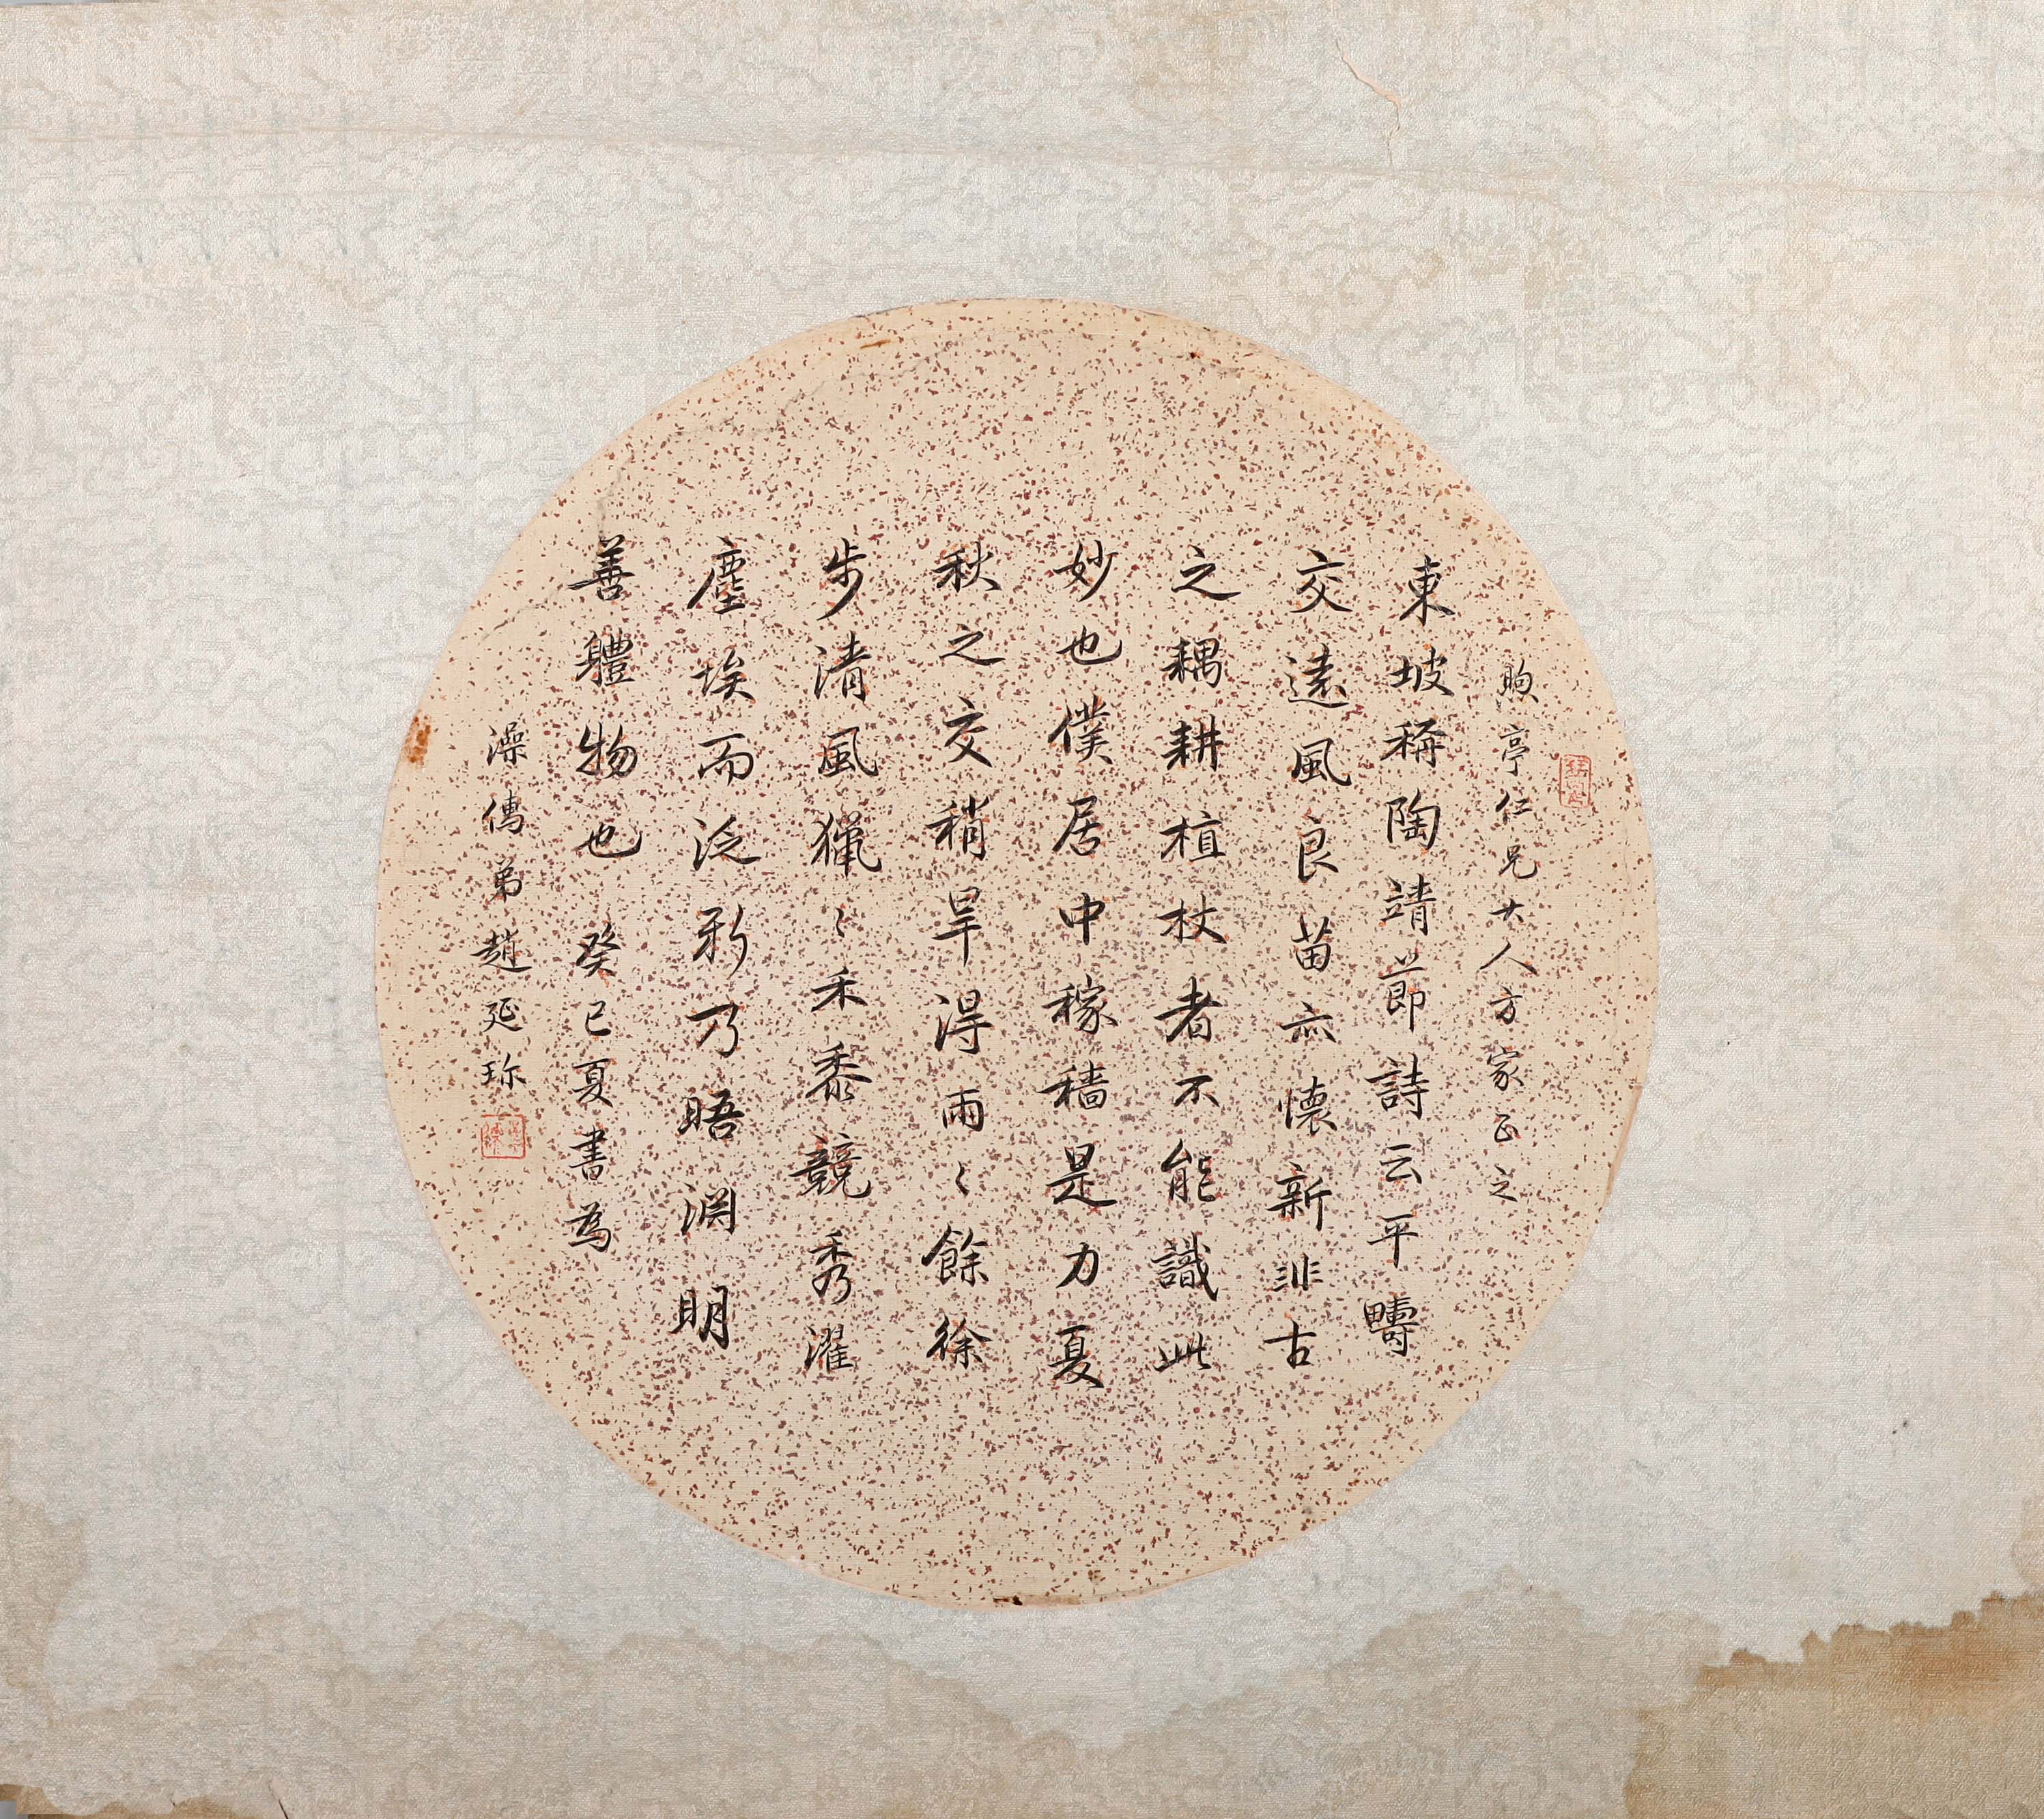 東坡稱陶靖節詩云平疇
交遠風良苗亦懷新非古
之耦耕植杖者不能識此
妙也僕居中稼穡是力夏
秋之交稍旱得雨〻餘徐
步清風獵〻禾黍競秀濯
塵埃而泛新乃晤淵明
善軆物也癸巳夏書為
煦亭仁兄大人方家正之
澡傳弟趙延珍